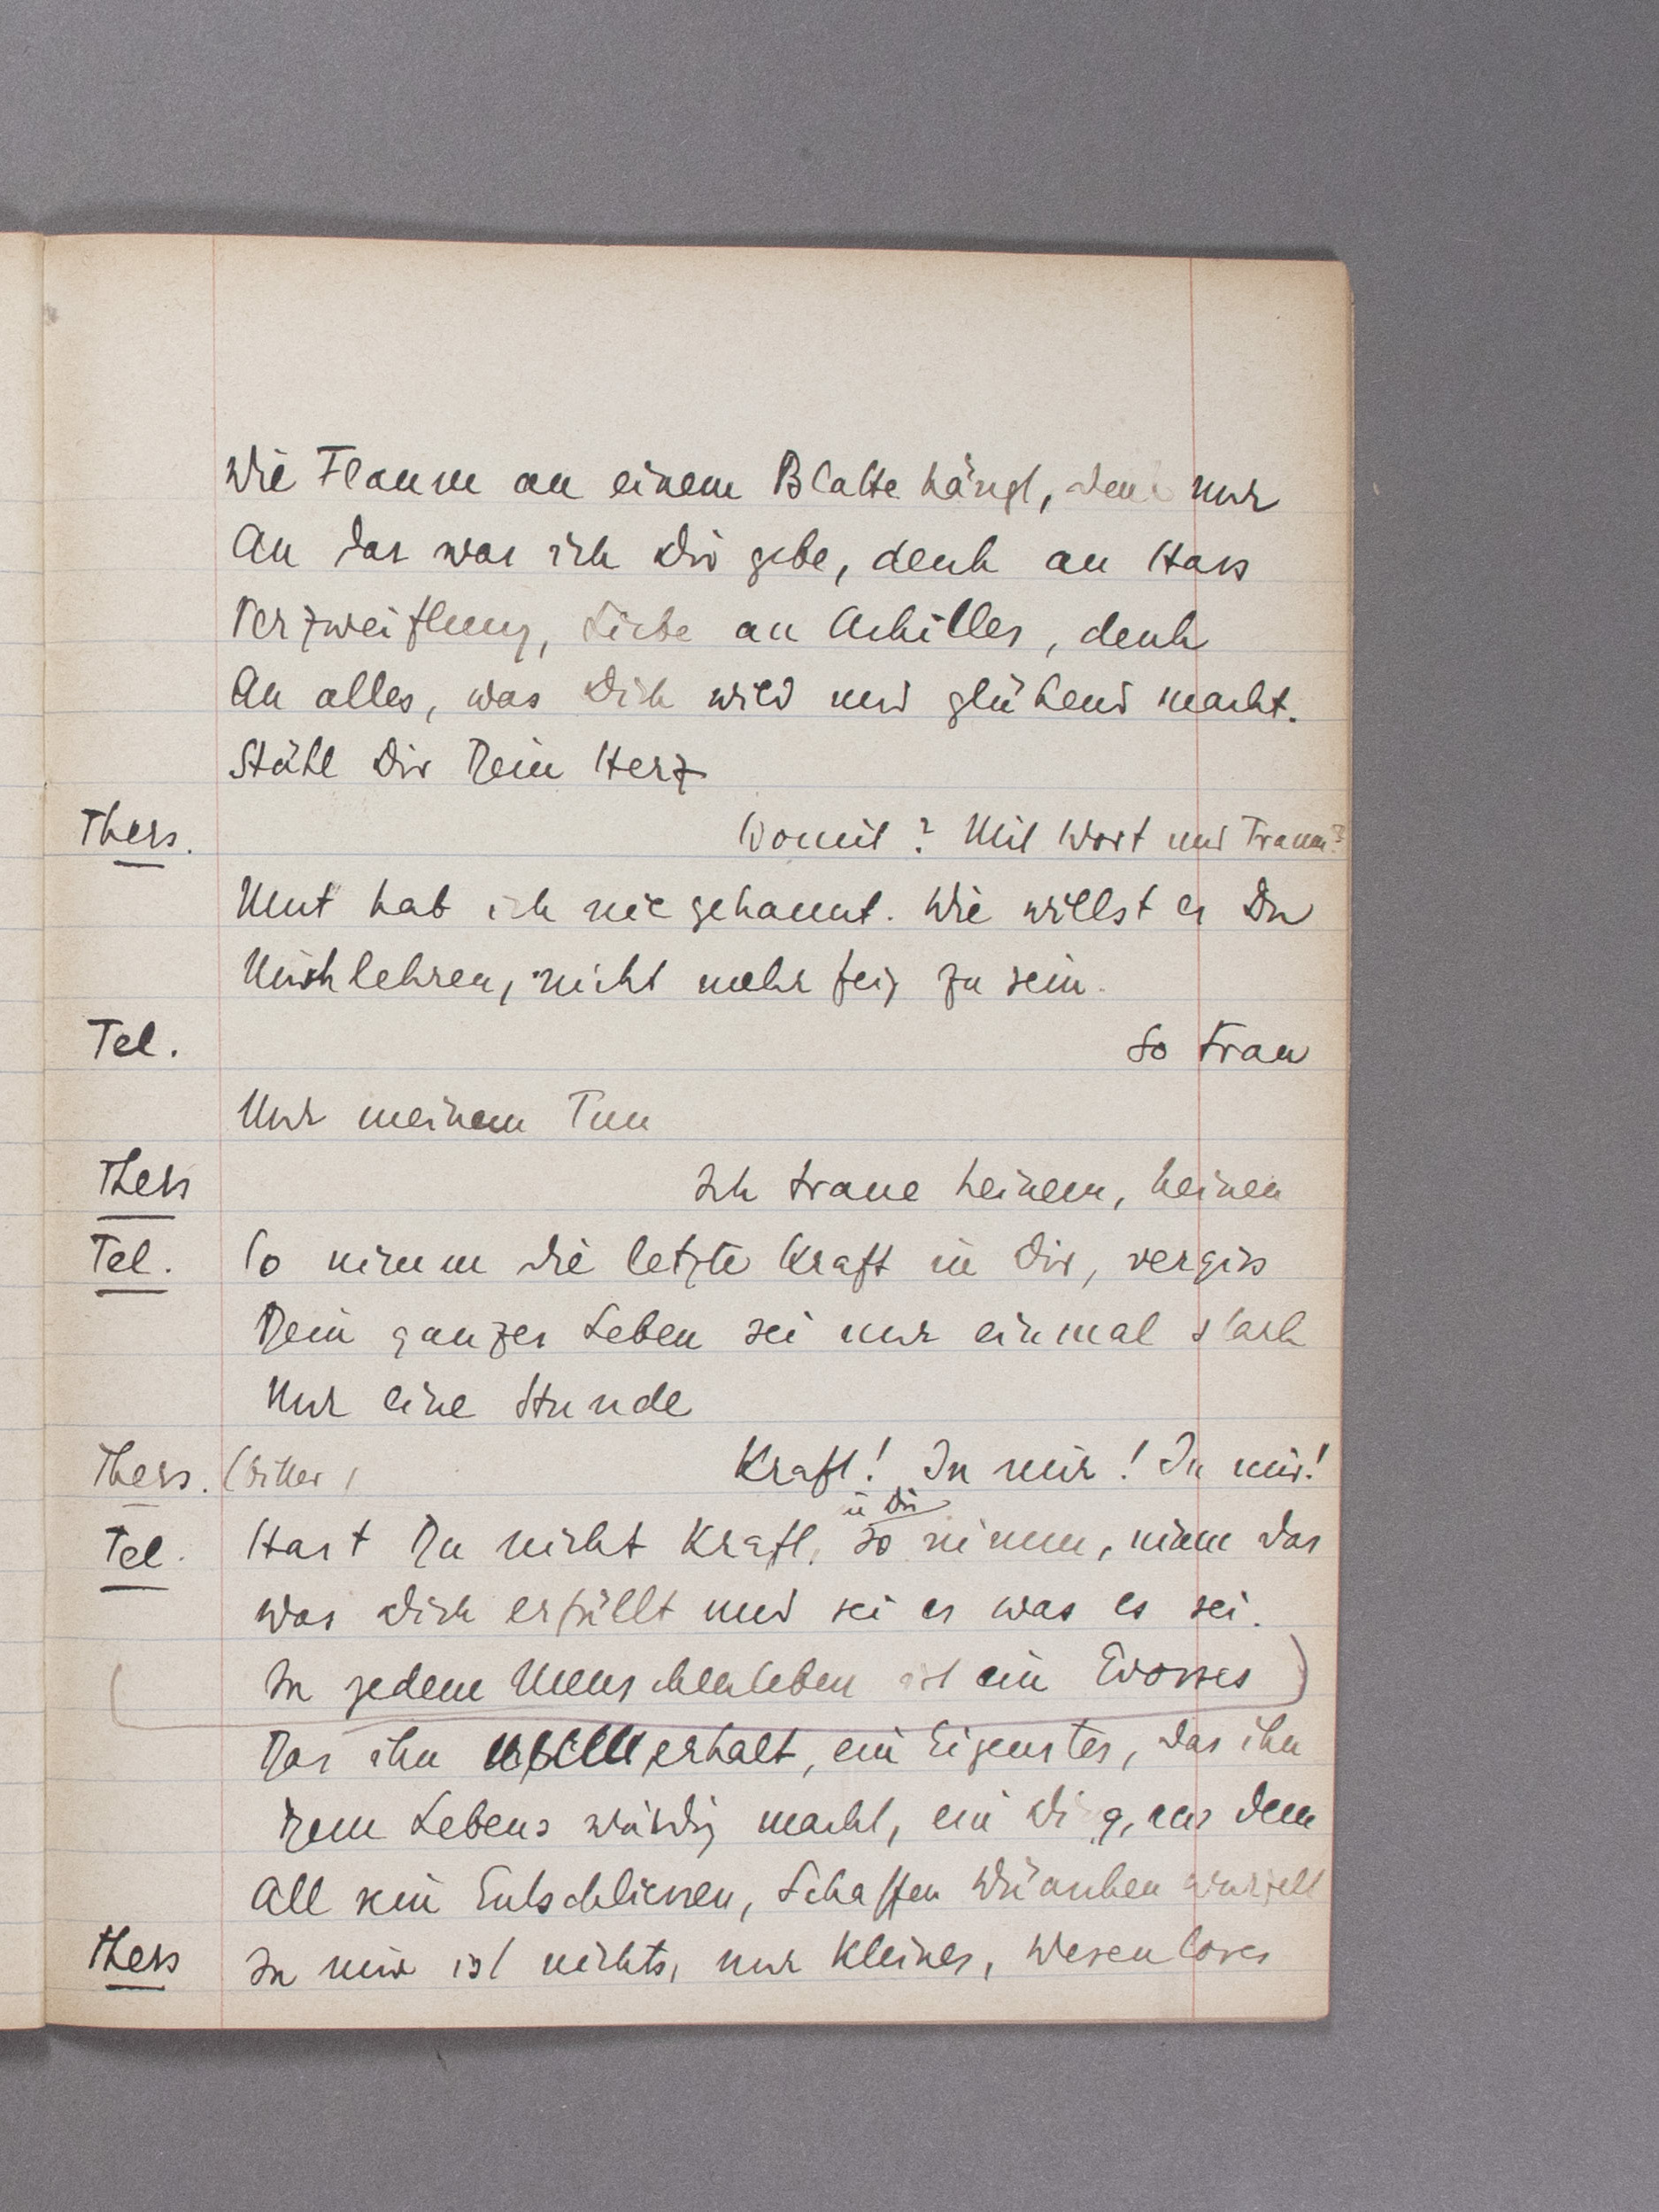 Wie Flaum an einem Blatte hängt, denk nur
An das was ich Dir gebe, denk an Hass
Verzweiflung, Liebe an Achilles, denk
An alles, was Dich wild und glühend macht.
Stähl Dir Dein Herz
Thers. Womit? Mit Wort und Traum?
Mut hab ich nie gekannt. Wie willst es Du
Mich lehren, nicht mehr feig zu sein.
Tel. So trau
Nur meinem Tun
Thers Ich traue keinem, keinen
Tel. So nimm die letzte Kraft in Dir, vergiss
Dein ganzes Leben sei nur einmal stark
Nur eine Stunde
Thers. (bitter) Kraft! In mir! In mir!
in Dir
Tel. Hast Du nicht Kraft, so nimm, nimm das
was dich erfüllt und sei es was es sei.
(In jedem Menschenleben ist ein Grosses)
Das ihn erhält, ein Eigenstes, das ihn
Dem Lebens würdig macht, ein Ding, aus dem
All sein Entschliessen, Schaffen Wünschen wurzelt
Thers In mir ist nichts, nur Kleines, Wesenloses